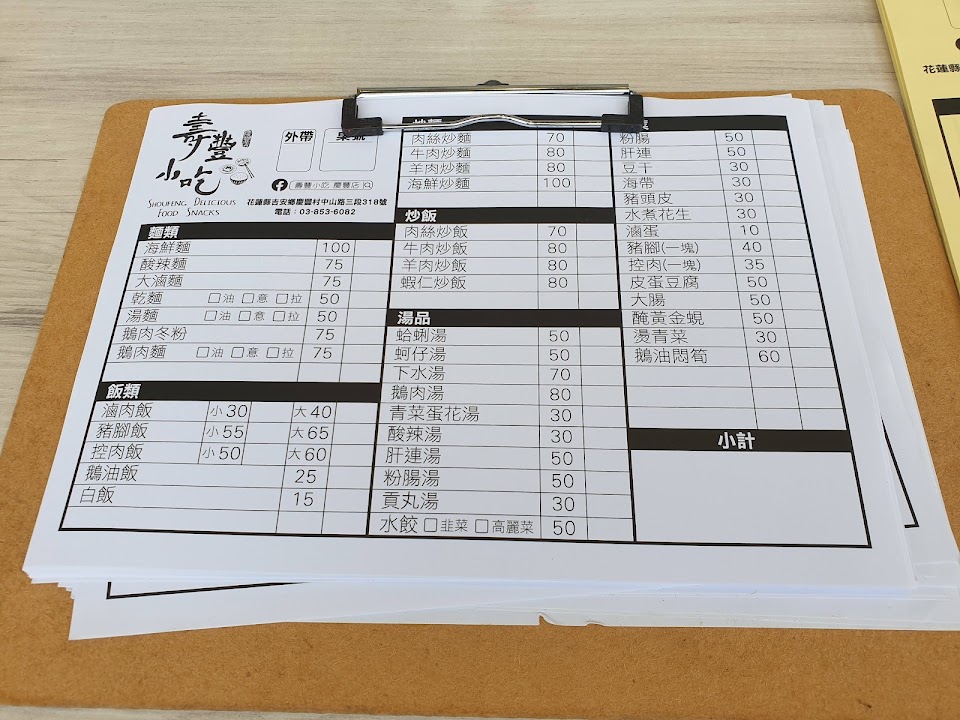 壽豐
小吃
SHOUFENG DELICIOUS
FOOD SNACKS
外帶
壽豐小吃 慶豐店
花蓮縣吉安鄉慶豐村中山路三段318號
電話：03-853-6082
麵類
海鮮麵 100
酸辣麵 75
大滷麵 75
乾麵 □油 □意 □拉 50
湯麵 □油 □意 □拉 50
鵝肉冬粉 75
鵝肉麵 □油 □意 □拉 75
飯類
滷肉飯 小30 大40
豬腳飯 小55 大65
控肉飯 小50 大60
鵝油飯 25
白飯 15
肉絲炒麵 70
牛肉炒麵 80
羊肉炒麵 80
海鮮炒麵 100
炒飯
肉絲炒飯 70
牛肉炒飯 80
羊肉炒飯 80
蝦仁炒飯 80
湯品
蛤蜊湯 50
蚵仔湯 50
下水湯 70
鵝肉湯 80
青菜蛋花湯 30
酸辣湯 30
肝連湯 50
粉腸湯 50
貢丸湯 30
水餃 □韭菜 □高麗菜 50
粉腸 50
肝連 50
豆干 30
海帶 30
豬頭皮 30
水煮花生 30
滷蛋 10
豬腳(一塊) 40
控肉(一塊) 35
皮蛋豆腐 50
大腸 50
醃黃金蜆 50
燙青菜 30
鵝油悶筍 60
小計
花蓮縣